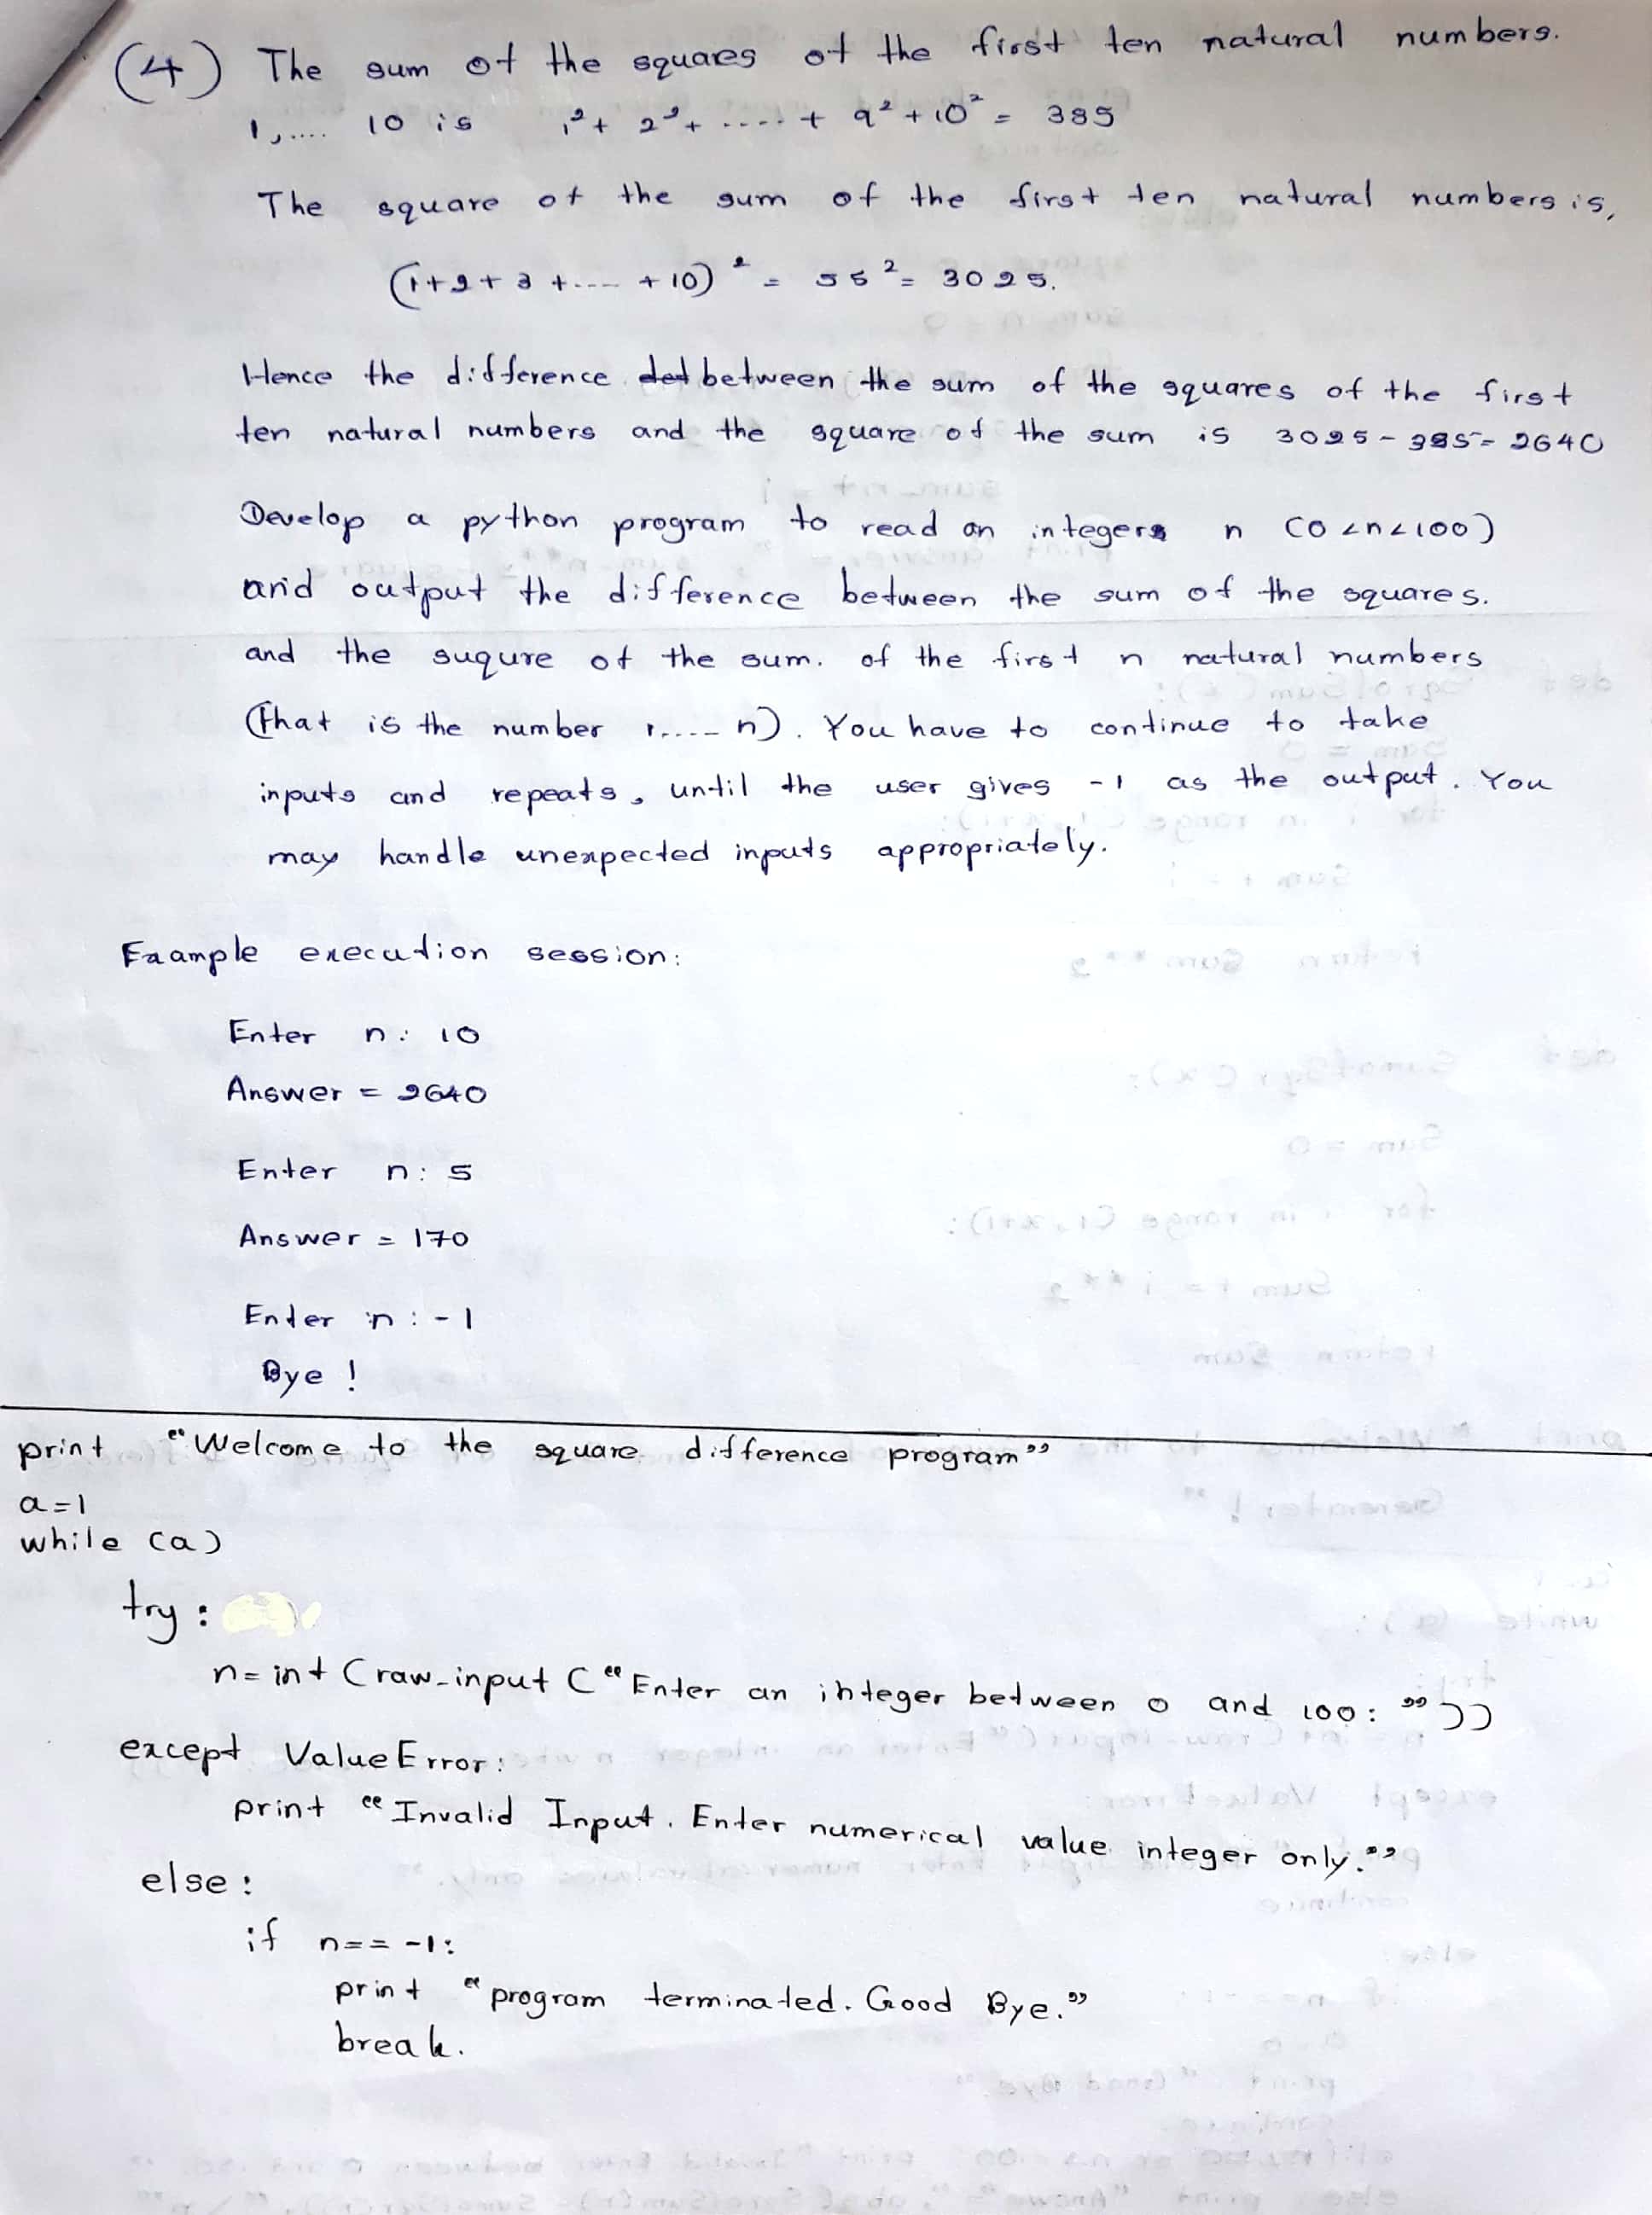 (4) The sum of the squares of the first ten natural numbers.
1,.... 10 is 1²+ 2²+ ..... + 9² + 10² = 385
The square of the sum of the first ten natural numbers is,
(1+2+3+.... +10)² = 55² = 3025.
Hence the difference between the sum of the squares of the first
ten natural numbers and the square of the sum is 3025 - 385 = 2640
Develop a python program to read an integers n (0 <n<100)
and output the difference between the sum of the squares.
and the suqure of the sum. of the first n natural numbers
(that is the number 1..... n). You have to continue to take
inputs and repeats, until the user gives -1 as the output. You
may handle unexpected inputs appropriately.
Example execution session:
Enter n: 10
Answer = 2640
Enter n: 5
Answer = 170
Enter n: -1
Bye !
print "Welcome to the square difference program"
a=1
while (a)
try :
n= int (raw_input ("Enter an integer between 0 and 100: "))
except ValueError:
print "Invalid Input. Enter numerical value integer only."
else:
if n== -1:
print "program terminated. Good Bye."
break.